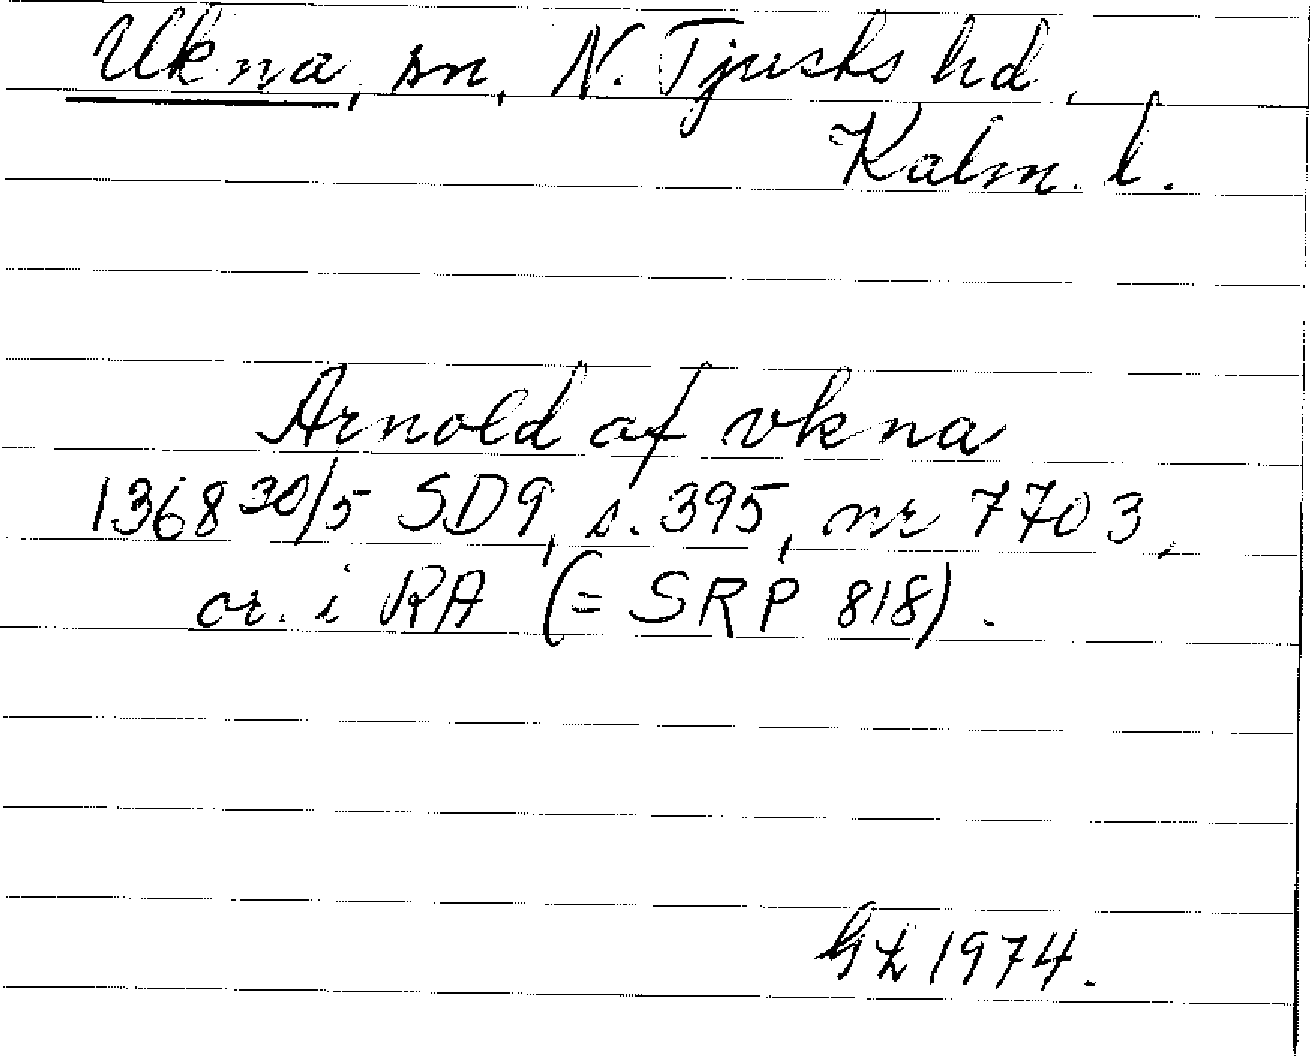 Ukna, sn, N. Tjusts hd,
Kalm. l.
Arnold af vkna
1368 30/5 SD9, s. 395, nr 7703,
or. i RA (= SRP 818).
GL 1974.